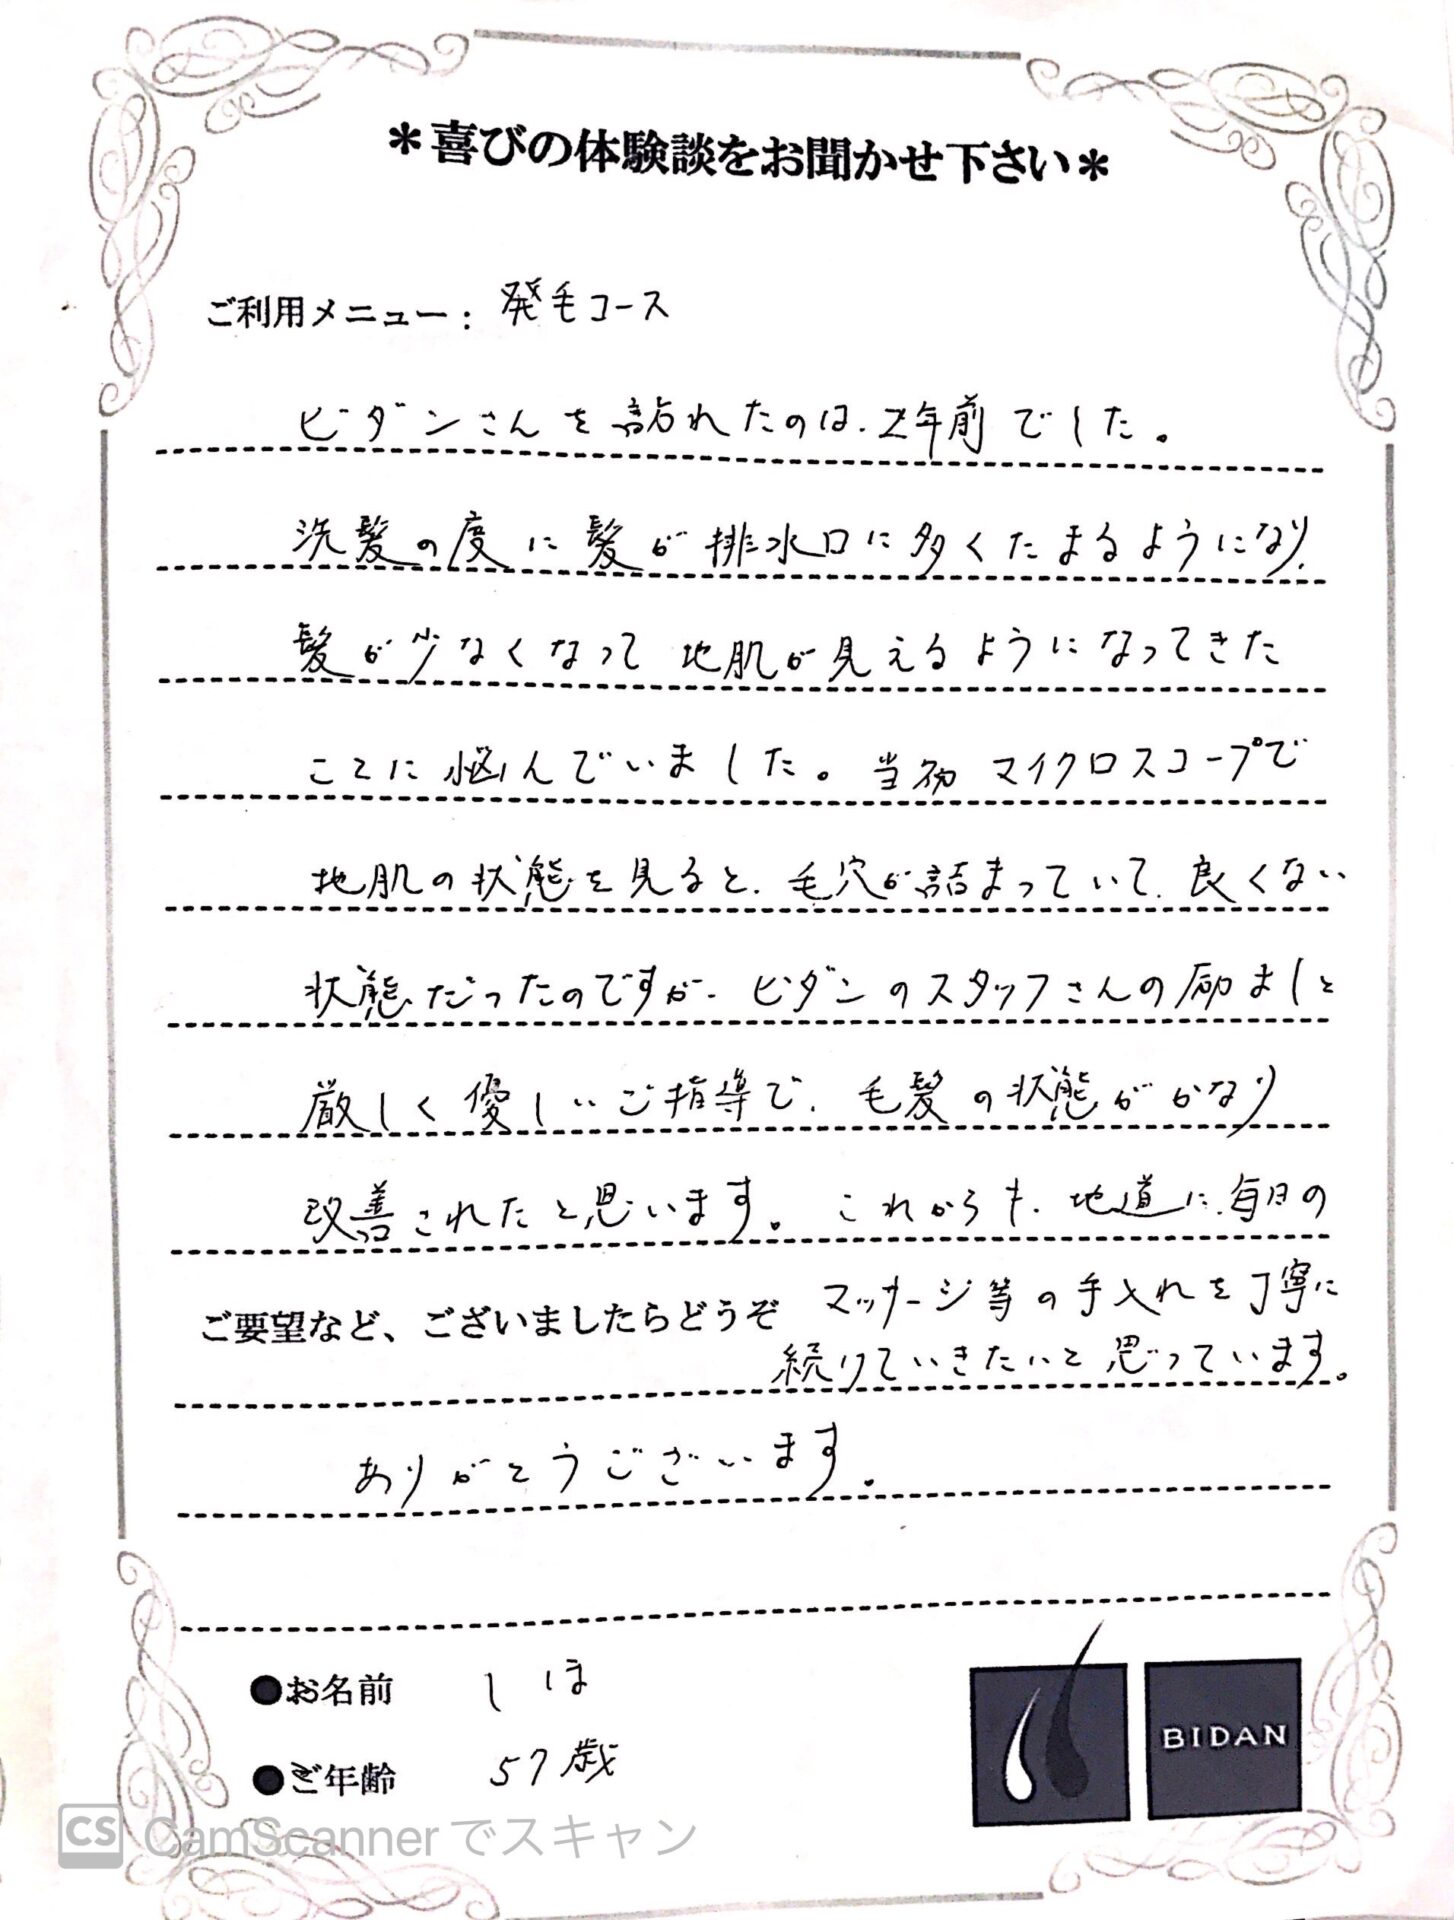 ＊喜びの体験談をお聞かせ下さい＊
ご利用メニュー： 発毛コース
ビダンさんを訪れたのは、2年前でした。
洗髪の度に髪が排水口に多くたまるようになり、
髪が少なくなって地肌が見えるようになってきた
ことに悩んでいました。当初マイクロスコープで
地肌の状態を見ると、毛穴が詰まっていて、良くない
状態だったのですが、ビダンのスタッフさんの励ましと
厳しく優しいご指導で、毛髪の状態がかなり
改善されたと思います。これからも、地道に毎日の
ご要望など、ございましたらどうぞ マッサージ等の手入れを丁寧に
続けていきたいと思っています。
ありがとうございます。
●お名前 しほ
●ご年齢 57歳
BIDAN
CS CamScannerでスキャン